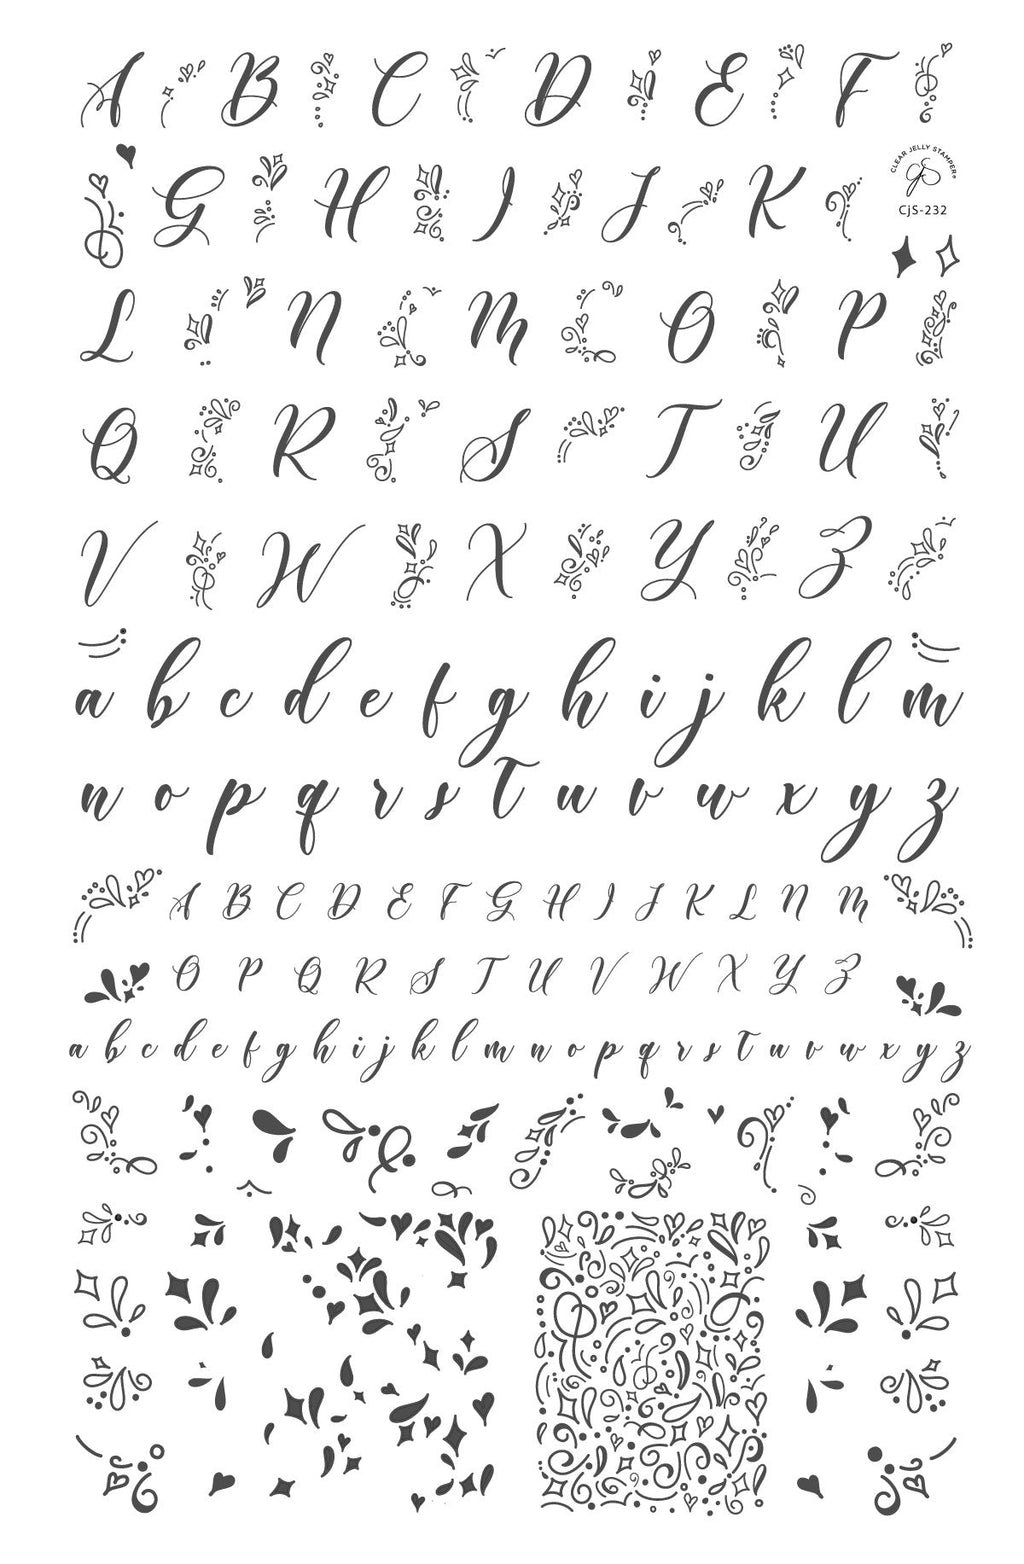 A B C D E F
CLEAR JELLY STAMPER®
CjS
CjS-232
G H I J K
L N M O P
Q R S T U
V W X Y Z
a b c d e f g h i j k l m
n o p q r s t u v w x y z
A B C D E F G H I J K L N M
O P Q R S T U V W X Y Z
a b c d e f g h i j k l m n o p q r s t u v w x y z